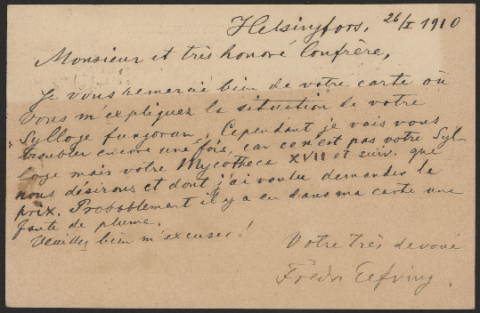 Helsingfors, 26/I 1910
Monsieur et très honoré Confrère,
Je vous remercie bien de votre carte où
vous m'expliquez la situation de votre
"Sylloge fungorum". Cependant je vais vous
troubler encore une fois, car ce n'est pas votre Syl-
loge mais votre Mycotheca XVII et suiv. que
nous désirons et dont j'ai voulu demander le
prix. Probablement il y a eu dans ma carte une
faute de plume.
Veuillez bien m'excuser!
Votre très devoué
Fredr. Elfving.